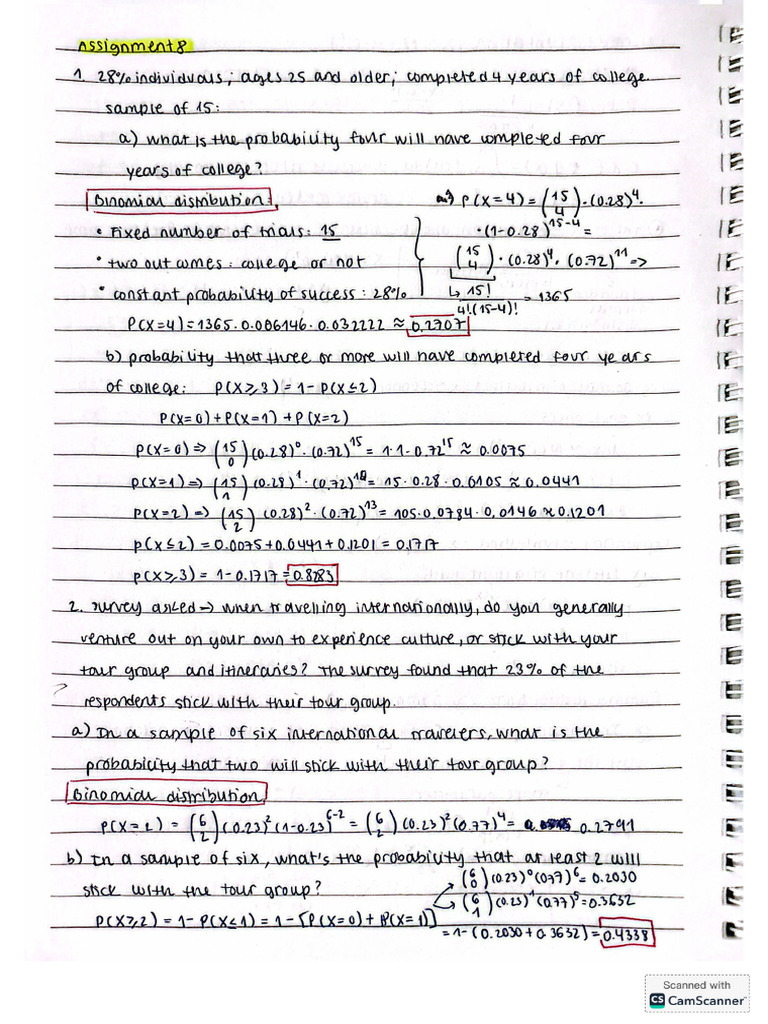 Assignment 8
1. 28% individuals; ages 25 and older; completed 4 years of college.
sample of 15:
a) what is the probability four will have completed four
years of college?
Binomial distribution: P(X=4) = (15 4) · (0.28)⁴ ·
• Fixed number of trials: 15 · (1-0.28)¹⁵⁻⁴ =
• two outcomes: college or not (15 4) · (0.28)⁴ · (0.72)¹¹ =>
• constant probability of success: 28% ↳ 15! / 4!·(15-4)! = 1365
P(X=4) = 1365 · 0.006146 · 0.032222 ≈ 0,2707
b) probability that three or more will have completed four years
of college: P(X⩾3) = 1 - P(X≤2)
P(X=0) + P(X=1) + P(X=2)
P(X=0) => (15 0) (0.28)⁰ · (0.72)¹⁵ = 1·1·0.72¹⁵ ≈ 0.0075
P(X=1) => (15 1) (0.28)¹ · (0.72)¹⁴ = 15 · 0.28 · 0.0105 ≈ 0.0441
P(X=2) => (15 2) (0.28)² · (0.72)¹³ = 105 · 0.0784 · 0,0146 ≈ 0.1201
P(X≤2) = 0.0075 + 0.0441 + 0.1201 = 0.1717
P(X⩾3) = 1 - 0.1717 = 0.8283
2. survey asked → when travelling internationally, do you generally
venture out on your own to experience culture, or stick with your
tour group and itineraries? The survey found that 23% of the
respondents stick with their tour group.
a) In a sample of six international travelers, what is the
probability that two will stick with their tour group?
Binomial distribution
P(X=2) = (6 2) (0.23)² (1-0.23)⁶⁻² = (6 2) (0.23)² (0.77)⁴ = 0.2791
b) In a sample of six, what's the probability that at least 2 will
stick with the tour group? (6 0) (0.23)⁰ (0.77)⁶ = 0.2030
(6 1) (0.23)¹ (0.77)⁵ = 0.3632
P(X⩾2) = 1 - P(X≤1) = 1 - [P(X=0) + P(X=1)]
= 1 - (0.2030 + 0.3632) = 0.4338
Scanned with
CS CamScanner